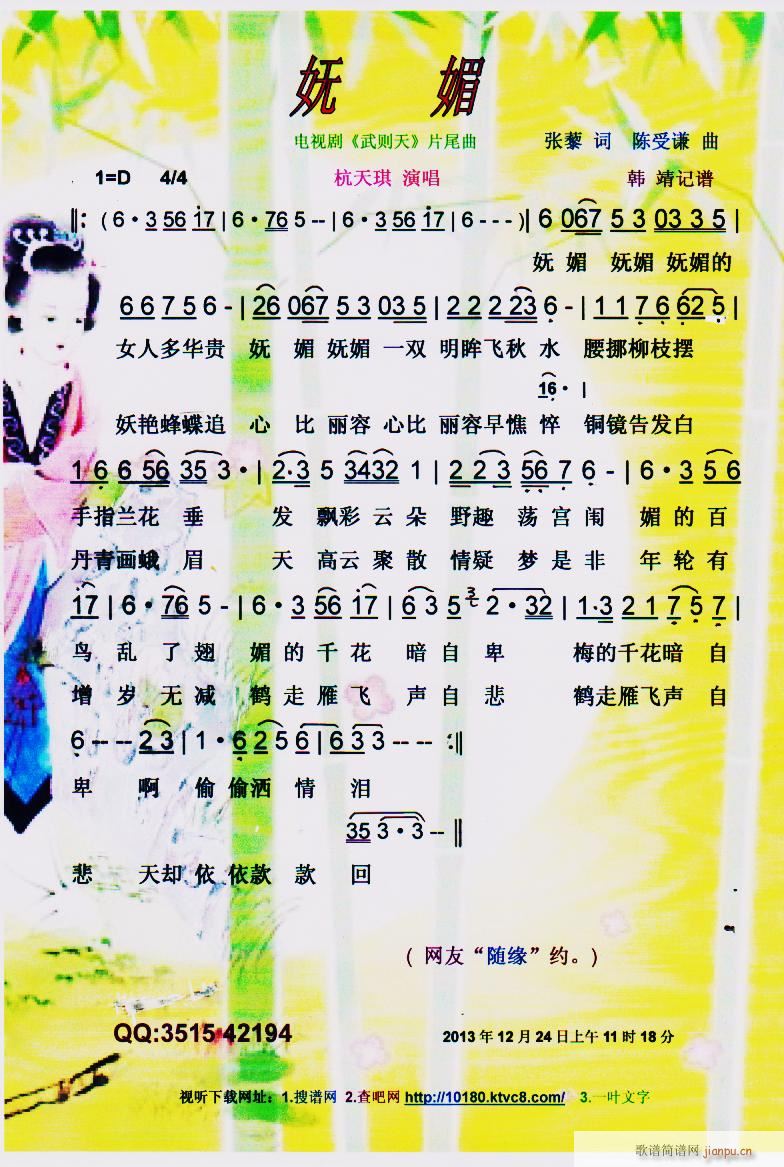 妩 媚
电视剧《武则天》片尾曲 张藜 词 陈受谦 曲
1=D 4/4 杭天琪 演唱 韩 靖记谱
‖: ( 6 · 3 56 i7 | 6 · 76 5 -- | 6 · 3 56 i7 | 6 - - - )| 6 067 5 3 03 3 5 |
妩 媚 妩媚 妩媚的
6 6 7 5 6 - | 26 067 5 3 03 5 | 2 2 2 23 6 - | 1 1 7 6 62 5 |
女人多华贵 妩 媚 妩媚 一双 明眸飞秋 水 腰挪柳枝摆
16 · |
妖艳蜂蝶追 心 比 丽容 心比 丽容早憔 悴 铜镜告发白
1 6 6 56 35 3 · | 2·3 5 3432 1 | 2 2 3 56 7 6 - | 6 · 3 5 6
手指兰花 垂 发 飘彩 云 朵 野趣 荡宫 闱 媚 的 百
丹青画蛾 眉 天 高云 聚 散 情疑 梦 是 非 年 轮 有
i7 | 6 · 76 5 - | 6 · 3 56 i7 | 6 3 5 2 · 32 | 1·3 2 1 7 5 7 |
鸟 乱 了 翅 媚 的 千 花 暗 自 卑 梅的千花暗 自
增 岁 无 减 鹤 走 雁 飞 声 自 悲 鹤走雁飞声 自
6 -- -- 2 3 | 1 · 6 2 5 6 | 6 3 3 -- -- :‖
卑 啊 偷 偷洒 情 泪
35 3 · 3 -- ‖
悲 天却 依 依款 款 回
( 网友“随缘”约。)
QQ:3515 42194 2013 年 12 月 24 日上午 11 时 18 分
视听下载网址：1.搜谱网 2.查吧网 http://10180.ktvc8.com/ 3.一叶文字
歌谱简谱网 jianpu.cn